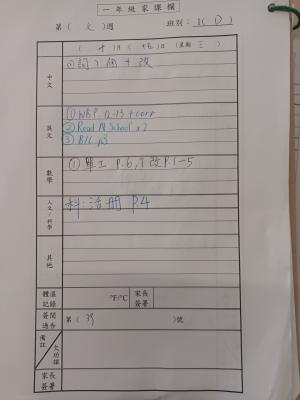 一年級家課欄
第( 文 )週 班別: 1( D )
( 十 )月( )日(星期 三 )
中文
①詞) 個 + 改
英文
① WB P. 12-13 + corr
② Read At School x2
③ B/C p3
數學
① 單工 P.6, 下改 P.1-5
人文/科學
科.活冊 P.4
其他
體溫記錄 °F/°C 家長簽署
簽閱通告 第( 39 )號
備註 欠功課
家長簽署